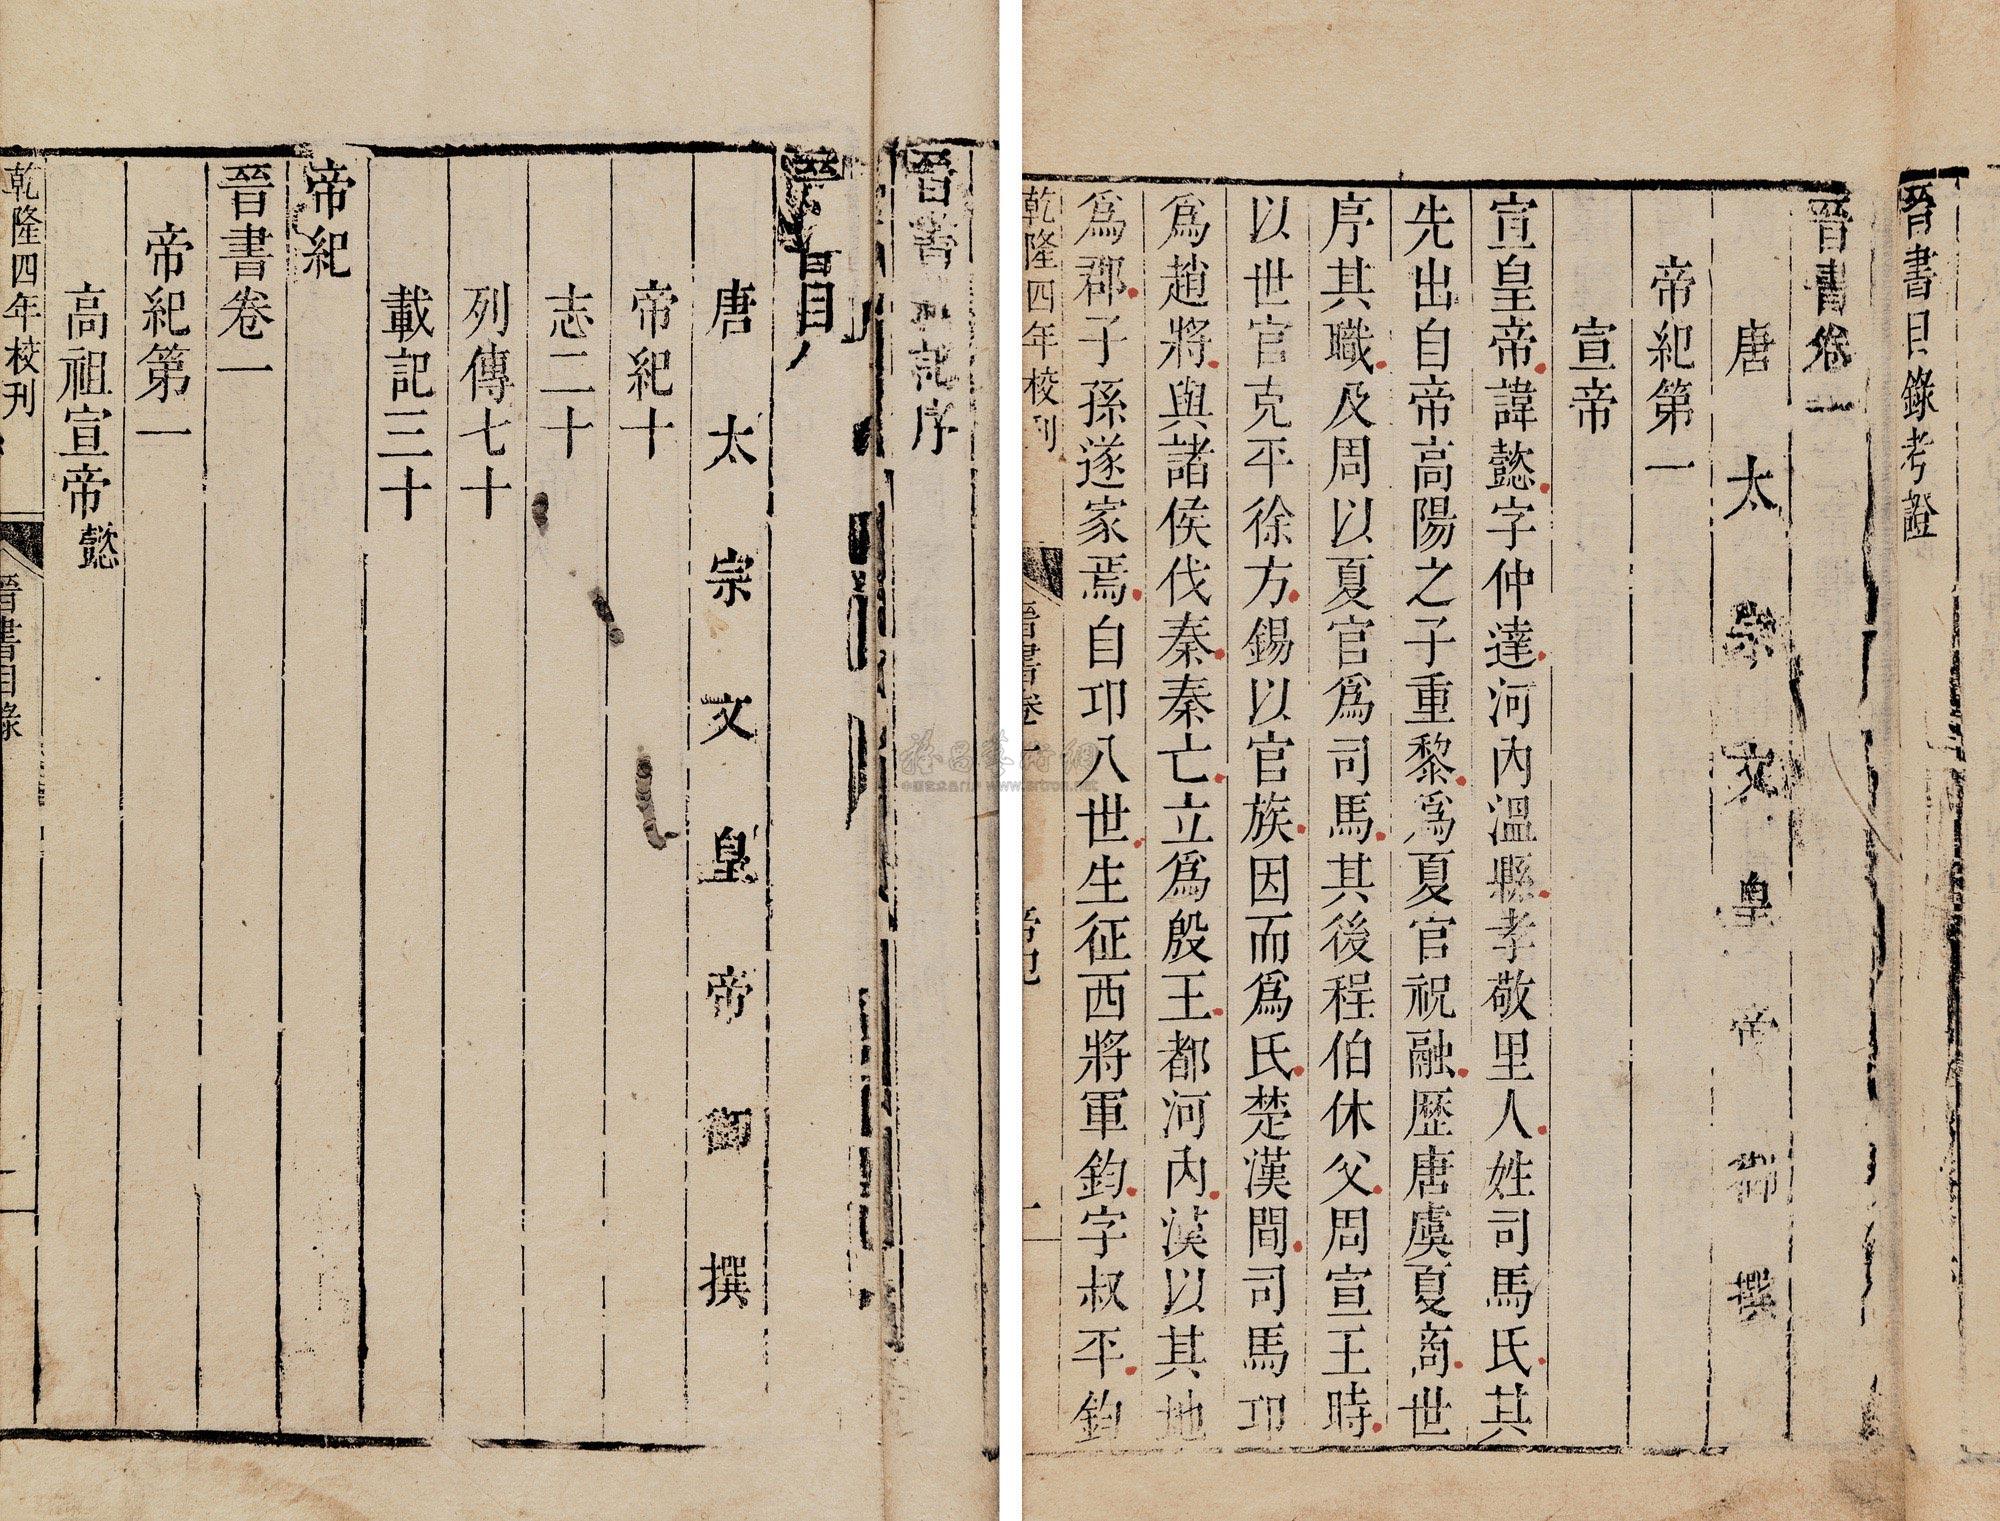 晉書目錄考證
晉書卷一
唐太宗文皇帝御撰
帝紀第一
宣帝
宣皇帝諱懿字仲達河內溫縣孝敬里人姓司馬氏其
先出自帝高陽之子重黎為夏官祝融歷唐虞夏商世
序其職及周以夏官為司馬其後程伯休父周宣王時
以世官克平徐方錫以官族因而為氏楚漢間司馬卬
為趙將與諸侯伐秦秦亡立為殷王都河內漢以其地
為郡子孫遂家焉自卬八世生征西將軍鈞字叔平鈞
乾隆四年校刊
晉書卷一
帝紀
一
晉書載記序
晉書目錄
唐太宗文皇帝御撰
帝紀十
志二十
列傳七十
載記三十
帝紀
晉書卷一
帝紀第一
高祖宣帝懿
乾隆四年校刊
晉書目錄
一
www.artron.net